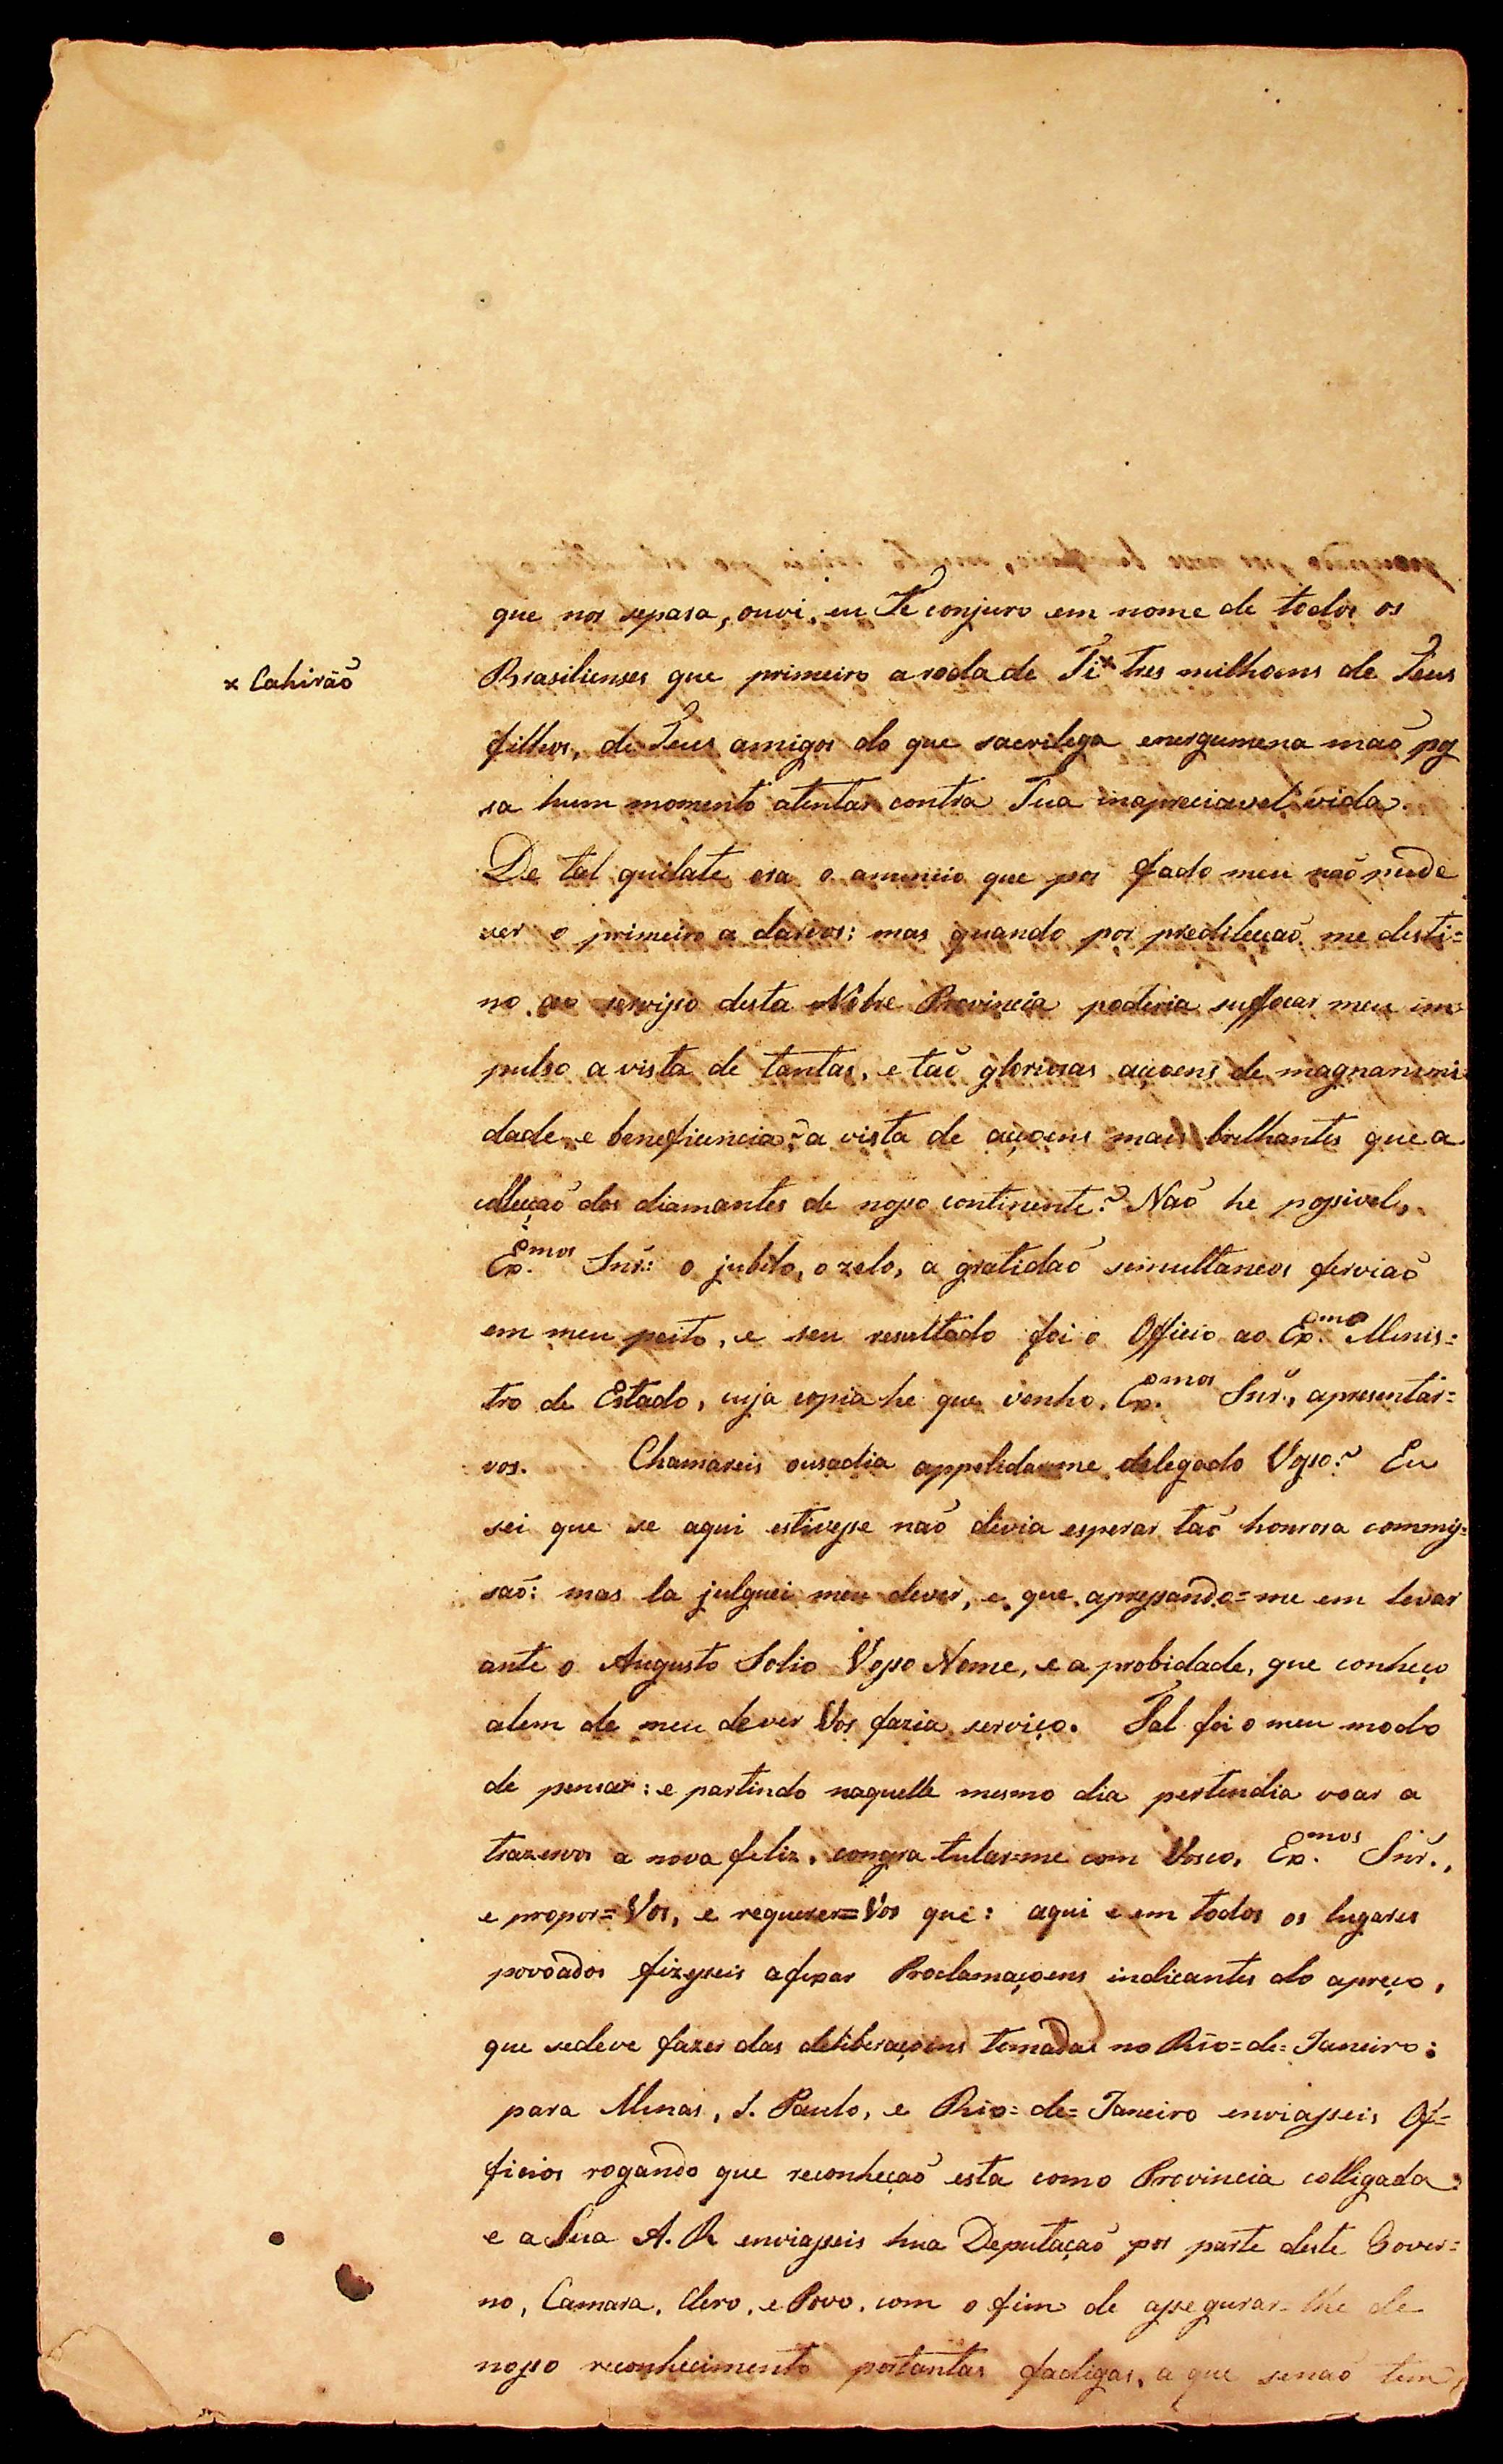 que nos separa, ouvi, eu Te conjuro em nome de todos os
x Cahiraõ
Brasilienses que primeiro a roda de Ti x tres milhoens de Teus
filhos, de Teus amigos do que sacrilega energumena maõ pos
sa hum momento atentar contra Tua inapreciavel vida.
De tal quilate era o anuncio que por fado meu naõ pude
ser o primeiro a darvos: mas quando por predilecçaõ me desti=
no ao serviso desta Nobre Provincia poderia suffocar meu im
pulso a vista de tantas, e taõ gloriosas acçoens de magnanimi=
dade e beneficiencia? a vista de acçoens mais brilhantes que a
collecçaõ dos diamantes de nosso continente? Naõ he possivel,
Ex.mos Snr.: o jubilo, o zelo, a gratidaõ simultaneos ferviaõ
em meu peito, e seu resultado foi o Officio ao Ex.mo Minis=
tro de Estado, cuja copia he que venho, Ex.mos Snr., apresentar=
vos. Chamareis ousadia appelidarme delegado Vosso? Eu
sei que se aqui estivesse naõ devia esperar taõ honrosa commis=
saõ: mas la julguei meu dever, e que apressando=me em levar
ante o Augusto Solio Vosso Nome, e a probidade, que conheço
alem de meu dever Vos fazia serviço. Tal foi o meu modo
de pensar: e partindo naquelle mesmo dia pertendia voar a
trazervos a nova feliz, congratularme com Vosco, Ex.mos Snr.,
e propor=Vos, e requerer=Vos que: aqui e em todos os lugares
povoados fizesseis afixar Proclamaçoens indicantes do apreço,
que sedeve fazer das deliberaçoens tomadas no Rio=de=Janeiro:
para Minas, S. Paulo, e Rio=de=Janeiro enviasseis Of=
ficios rogando que reconheçaõ esta como Provincia colligada:
e a Sua A. R enviasseis hua Deputaçaõ por parte deste Gover=
no, Camara, Clero, e Povo, com o fim de assegurar=lhe de
nosso reconhecimento portantas fadigas, a que senaõ tem